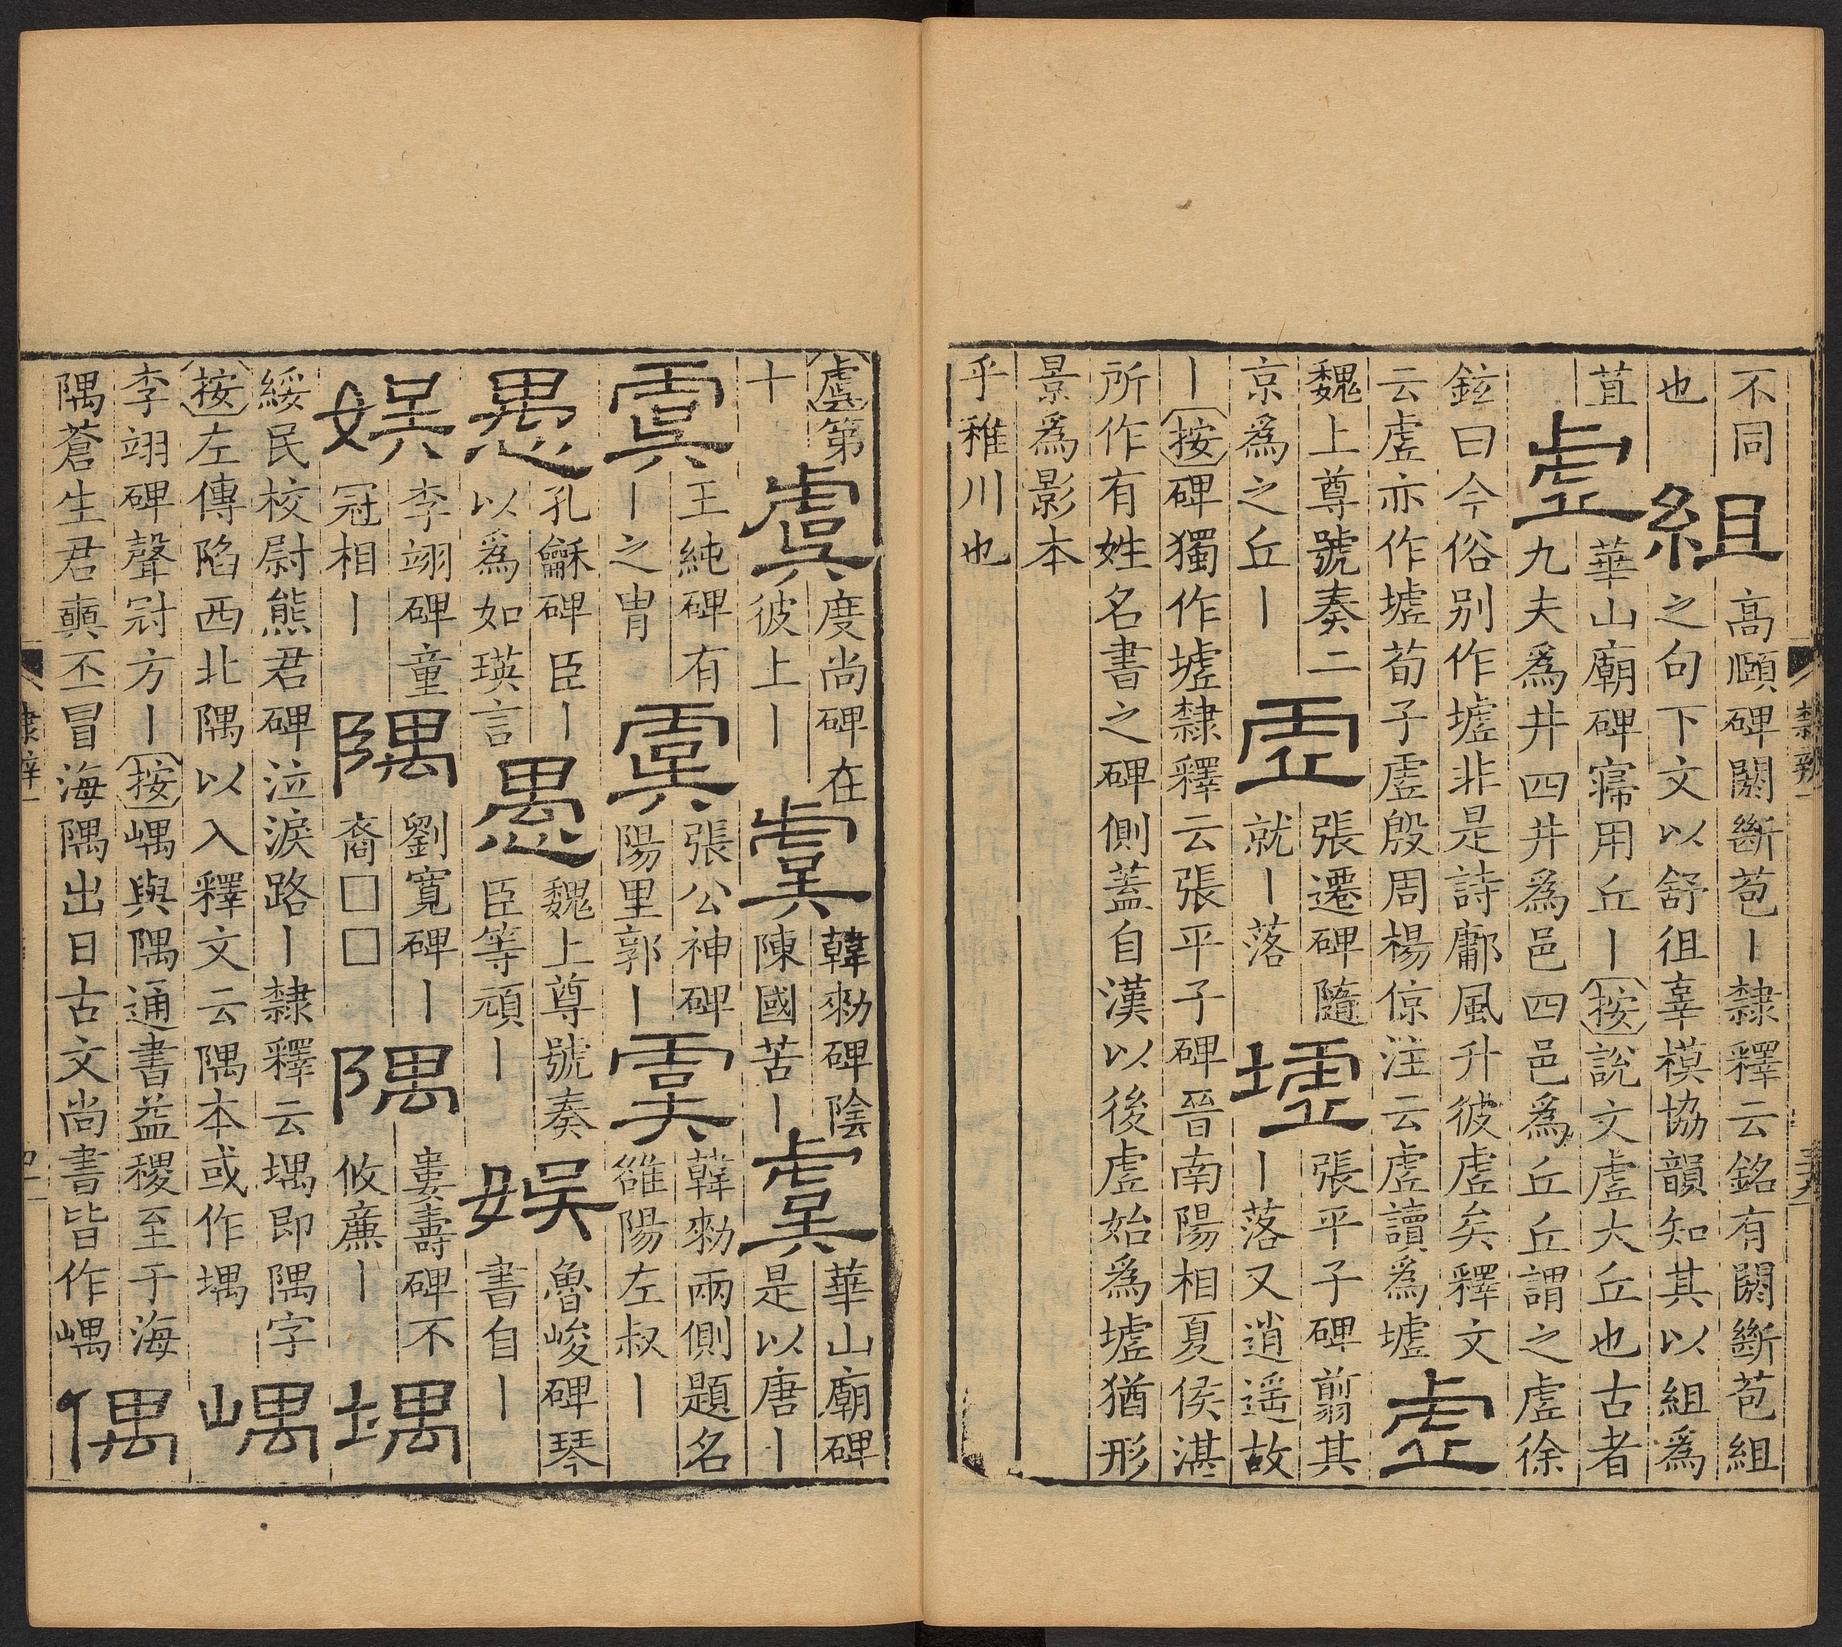 隸辨一
不同
也
組
高頤碑闕斷苞丨隸釋云銘有闕斷苞組
之句下文以舒徂辜模協韻知其以組為
苴
虛
華山廟碑寤用丘丨按說文虛大丘也古者
九夫為井四井為邑四邑為丘丘謂之虛徐
鉉曰今俗别作墟非是詩鄘風升彼虛矣釋文
云虛亦作墟荀子虛殷周楊倞注云虛讀為墟
虛
魏上尊號奏二
京為之丘丨
虛
張遷碑隨
就丨落
墟
張平子碑翦其
丨落又逍遥故
丨按碑獨作墟隸釋云張平子碑晉南陽相夏侯湛
所作有姓名書之碑側蓋自漢以後虛始為墟猶形
景為影本
乎稚川也
虞第
十
虞
度尚碑在
彼上丨
虞
韓勑碑陰
陳國苦丨
虞
華山廟碑
是以唐丨
虞
王純碑有
丨之胄
虞
張公神碑
陽里郭丨
虞
韓勑兩側題名
雒陽左叔丨
愚
孔龢碑臣丨
以為如瑛言
愚
魏上尊號奏
臣等頑丨
娛
魯峻碑琴
書自丨
娛
李翊碑童
冠相丨
隅
劉寬碑丨
裔□□
隅
婁壽碑不
攸廉丨
堣
綏民校尉熊君碑泣淚路丨隸釋云堣即隅字
按左傳陷西北隅以入釋文云隅本或作堣
嵎
李翊碑聲冠方丨按嵎與隅通書益稷至于海
隅蒼生君奭丕冒海隅出日古文尚書皆作嵎
偶
隸辨一